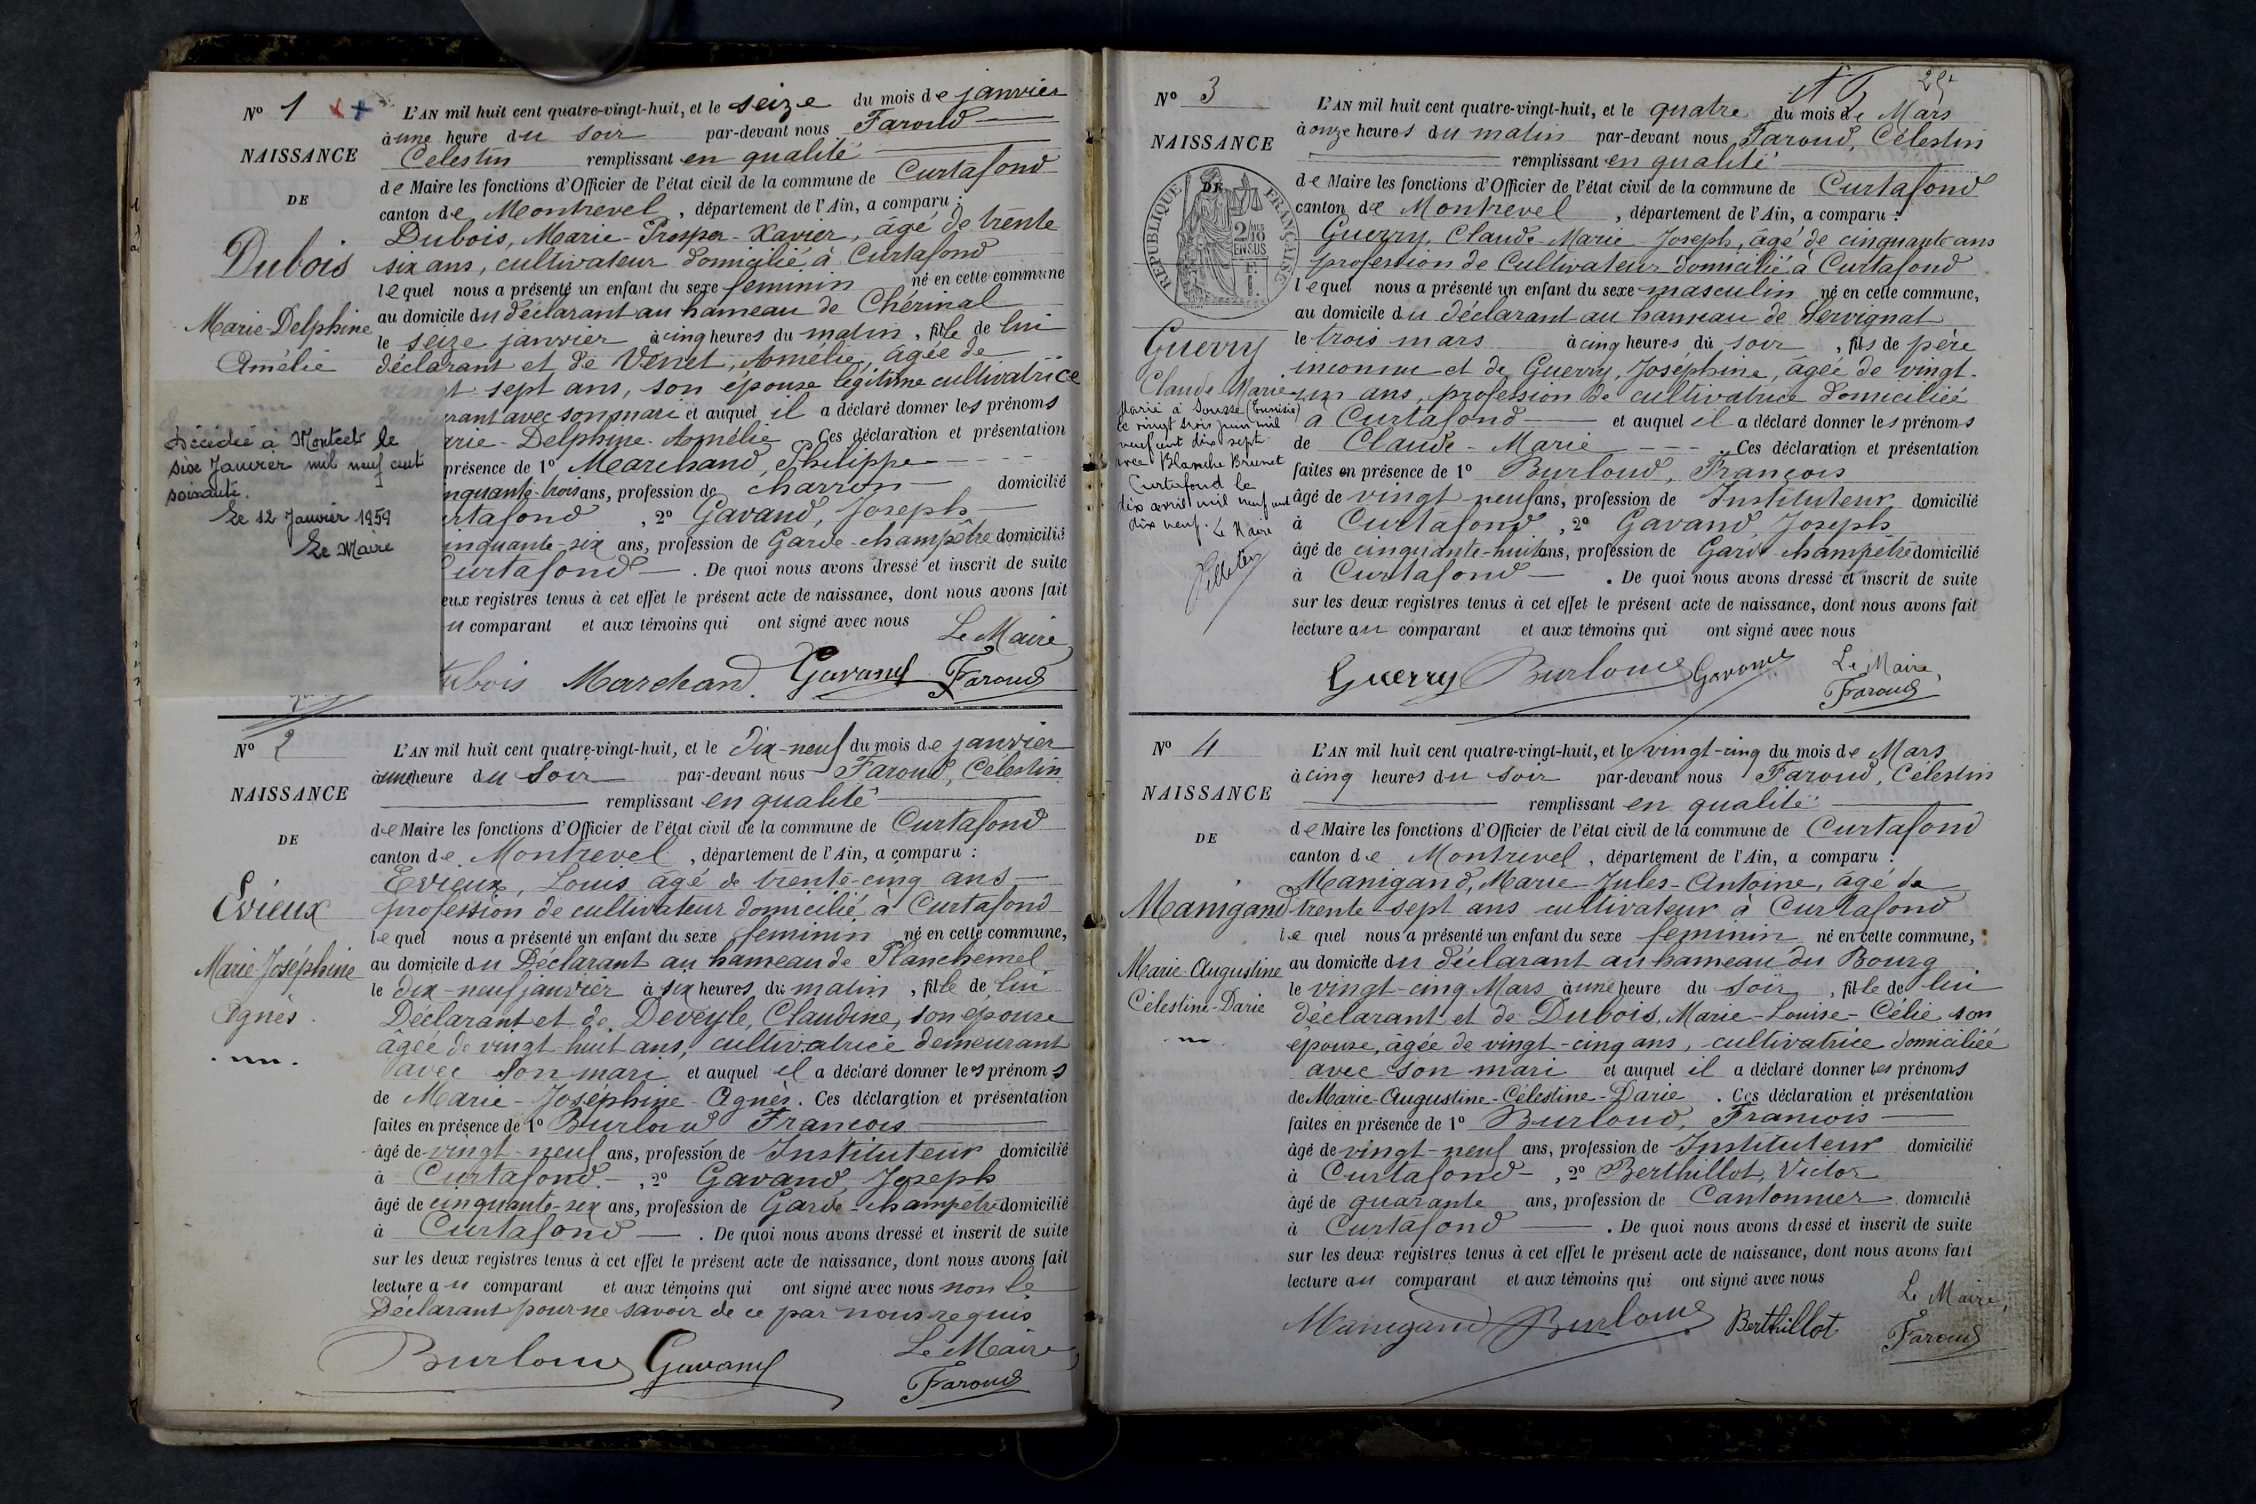 N° 1
NAISSANCE
DE
Dubois
Marie-Delphine
Amélie
Décédée à Montcet le
six Janvier mil neuf cent
soixante.
Le 12 Janvier 1959
Le Maire
L'AN mil huit cent quatre-vingt-huit, et le seize du mois de janvier
à une heure du soir par-devant nous Faroud
Célestin remplissant en qualité
de Maire les fonctions d'Officier de l'état civil de la commune de Curtafond
canton de Montrevel, département de l'Ain, a comparu :
Dubois, Marie-Prosper-Xavier, âgé de trente
six ans, cultivateur domicilié à Curtafond
lequel nous a présenté un enfant du sexe feminin né en cette commune
au domicile du déclarant au hameau de Chérinal
le seize janvier à cinq heures du matin, fille de lui
déclarant et de Venet, Amélie, âgée de
vingt sept ans, son épouse légitime cultivatrice
rant avec son mari et auquel il a déclaré donner les prénoms
rie-Delphine-Amélie Ces déclaration et présentation
présence de 1° Marchand, Philippe
nquante-trois ans, profession de charron domicilié
rtafond, 2° Gavand, Joseph
inquante-six ans, profession de Garde-champêtre domicilié
urtafond. De quoi nous avons dressé et inscrit de suite
eux registres tenus à cet effet le présent acte de naissance, dont nous avons fait
u comparant et aux témoins qui ont signé avec nous
Le Maire
ubois Marchand. Gavand Faroud
N° 2
NAISSANCE
DE
Evieux
Marie Joséphine
Agnès.
L'AN mil huit cent quatre-vingt-huit, et le dix-neuf du mois de janvier
à une heure du soir par-devant nous Faroud, Célestin
remplissant en qualité
de Maire les fonctions d'Officier de l'état civil de la commune de Curtafond
canton de Montrevel, département de l'Ain, a comparu :
Evieux, Louis âgé de trente-cinq ans
profession de cultivateur domicilié à Curtafond
lequel nous a présenté un enfant du sexe feminin né en cette commune,
au domicile du Déclarant au hameau de Planchemel
le dix-neuf janvier à six heures du matin, fille de lui
Déclarant et de Deveyle, Claudine, son épouse
âgée de vingt huit ans, cultivatrice demeurant
avec son mari et auquel il a déclaré donner les prénoms
de Marie-Joséphine-Agnès. Ces déclaration et présentation
faites en présence de 1° Burloud François
âgé de vingt-neuf ans, profession de Instituteur domicilié
à Curtafond, 2° Gavand, Joseph
âgé de cinquante-six ans, profession de Garde-champêtre domicilié
à Curtafond. De quoi nous avons dressé et inscrit de suite
sur les deux registres tenus à cet effet le présent acte de naissance, dont nous avons fait
lecture au comparant et aux témoins qui ont signé avec nous non le
Déclarant pour ne savoir de ce par nous requis
Burloud Gavand
Le Maire
Faroud
N° 3
NAISSANCE
DE
RÉPUBLIQUE FRANÇAISE
2/10 EN SUS
Guerry
Claude Marie
Marié à Sousse (Tunisie)
le vingt trois juin mil
neuf cent dix sept
avec Blanche Brunet
Curtafond le
dix avril mil neuf cent
dix neuf.
Le Maire
L'AN mil huit cent quatre-vingt-huit, et le quatre du mois de Mars
à onze heures du matin par-devant nous Faroud, Célestin
remplissant en qualité
de Maire les fonctions d'Officier de l'état civil de la commune de Curtafond
canton de Montrevel, département de l'Ain, a comparu :
Guerry, Claude-Marie-Joseph, âgé de cinquante ans
profession de Cultivateur domicilié à Curtafond
lequel nous a présenté un enfant du sexe masculin né en cette commune,
au domicile du déclarant au hameau de Servignat
le trois mars à cinq heures du soir, fils de père
inconnu et de Guerry, Joséphine, âgée de vingt-
un ans, profession de cultivatrice domiciliée
à Curtafond et auquel il a déclaré donner les prénoms
de Claude-Marie. Ces déclaration et présentation
faites en présence de 1° Burloud, François
âgé de vingt neuf ans, profession de Instituteur domicilié
à Curtafond, 2° Gavand, Joseph
âgé de cinquante-huit ans, profession de Garde champêtre domicilié
à Curtafond. De quoi nous avons dressé et inscrit de suite
sur les deux registres tenus à cet effet le présent acte de naissance, dont nous avons fait
lecture au comparant et aux témoins qui ont signé avec nous
Guerry Burloud Gavand
Le Maire
Faroud
N° 4
NAISSANCE
DE
Manigand
Marie-Augustine
Célestine-Darie
L'AN mil huit cent quatre-vingt-huit, et le vingt-cinq du mois de Mars
à cinq heures du soir par-devant nous Faroud, Célestin
remplissant en qualité
de Maire les fonctions d'Officier de l'état civil de la commune de Curtafond
canton de Montrevel, département de l'Ain, a comparu :
Manigand, Marie-Jules-Antoine, âgé de
trente-sept ans cultivateur à Curtafond
lequel nous a présenté un enfant du sexe feminin né en cette commune,
au domicile du déclarant au hameau du Bourg
le vingt-cinq Mars à une heure du soir, fille de lui
déclarant et de Dubois, Marie-Louise-Célie son
épouse, âgée de vingt-cinq ans, cultivatrice domiciliée
avec son mari et auquel il a déclaré donner les prénoms
de Marie-Augustine-Célestine-Darie. Ces déclaration et présentation
faites en présence de 1° Burloud, François
âgé de vingt-neuf ans, profession de Instituteur domicilié
à Curtafond, 2° Berthillot, Victor
âgé de quarante ans, profession de Cantonnier domicilié
à Curtafond. De quoi nous avons dressé et inscrit de suite
sur les deux registres tenus à cet effet le présent acte de naissance, dont nous avons fait
lecture au comparant et aux témoins qui ont signé avec nous
Le Maire,
Manigand Burloud Berthillot Faroud